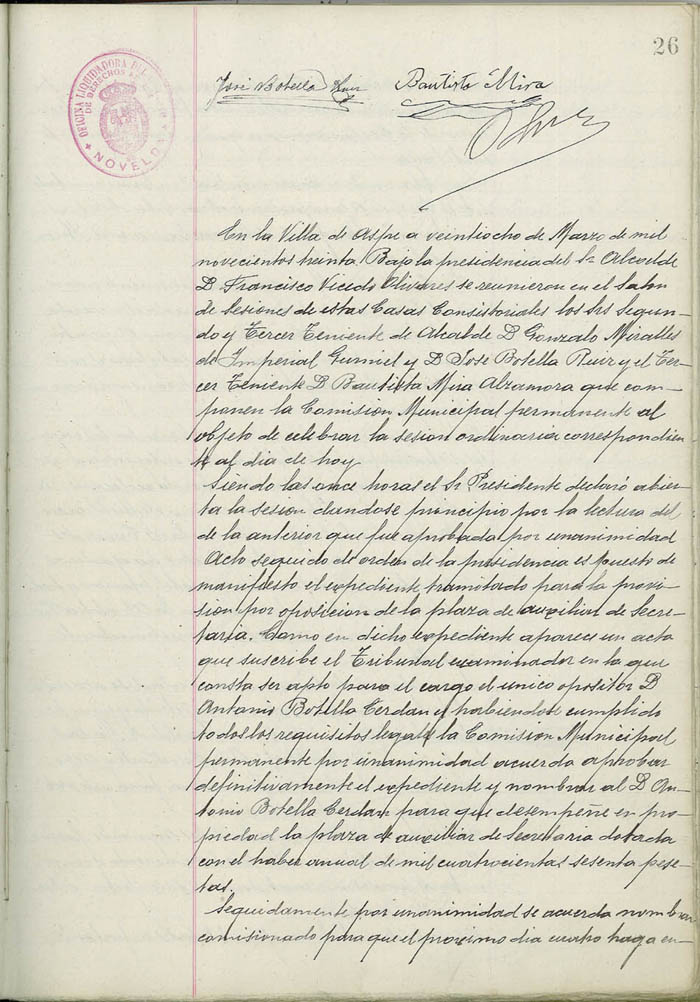 26
OFICINA LIQUIDADORA DEL
DE DERECHOS
NOVELDA
José Botella Ruiz Bautista Mira
En la Villa de Aspe a veintiocho de Marzo de mil
novecientos treinta. Bajo la presidencia del Sr Alcalde
D. Francisco Vicedo Olivares se reunieron en el Salon
de Sesiones de estas Casas Consistoriales los Srs Segun-
do y Tercer Teniente de Alcalde D Gonzalo Miralles
de Imperial Gumiel y D José Botella Ruiz y el Ter-
cer Teniente D Bautista Mira Alzamora que com-
ponen la Comision Municipal permanente al
objeto de celebrar la sesion ordinaria correspondien-
te al dia de hoy
Siendo las once horas el Sr Presidente declaró abier-
ta la sesion dandose principio por la lectura del
de la anterior que fue aprobada por unanimidad
Acto seguido de orden de la presidencia es puesto de
manifiesto el expediente tramitado para la provi-
sion por oposicion de la plaza de auxiliar de Secre-
taria. Como en dicho expediente aparece un acta
que suscribe el Tribunal examinador en la que
consta ser apto para el cargo el unico opositor D
Antonio Botella Cerdan y habiendose cumplido
todos los requisitos legales la Comision Municipal
permanente por unanimidad acuerda aprobar
definitivamente el expediente y nombrar al D An-
tonio Botella Cerdan para que desempeñe en pro-
piedad la plaza de auxiliar de Secretaria dotada
con el haber anual de mil cuatrocientas sesenta pese-
tas.
Seguidamente por unanimidad se acuerda nombrar
comisionado para que el proximo dia cuatro haga en-